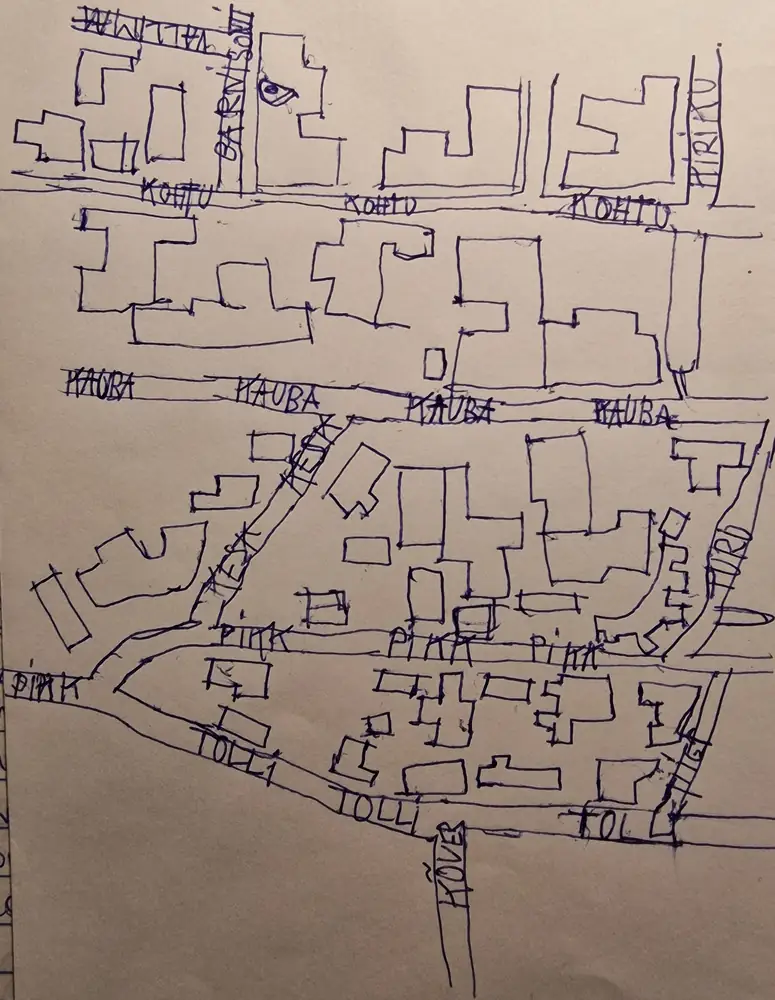 VALLIMAE
GARNISONI
KIRIKU
KOHTU
KOHTU
KOHTU
KAUBA
KAUBA
KAUBA
KAUBA
KESK
KESK
TURU
PIKK
PIKK
PIKK
PIKK
TOLLI
TOLLI
TOL
KÕVER